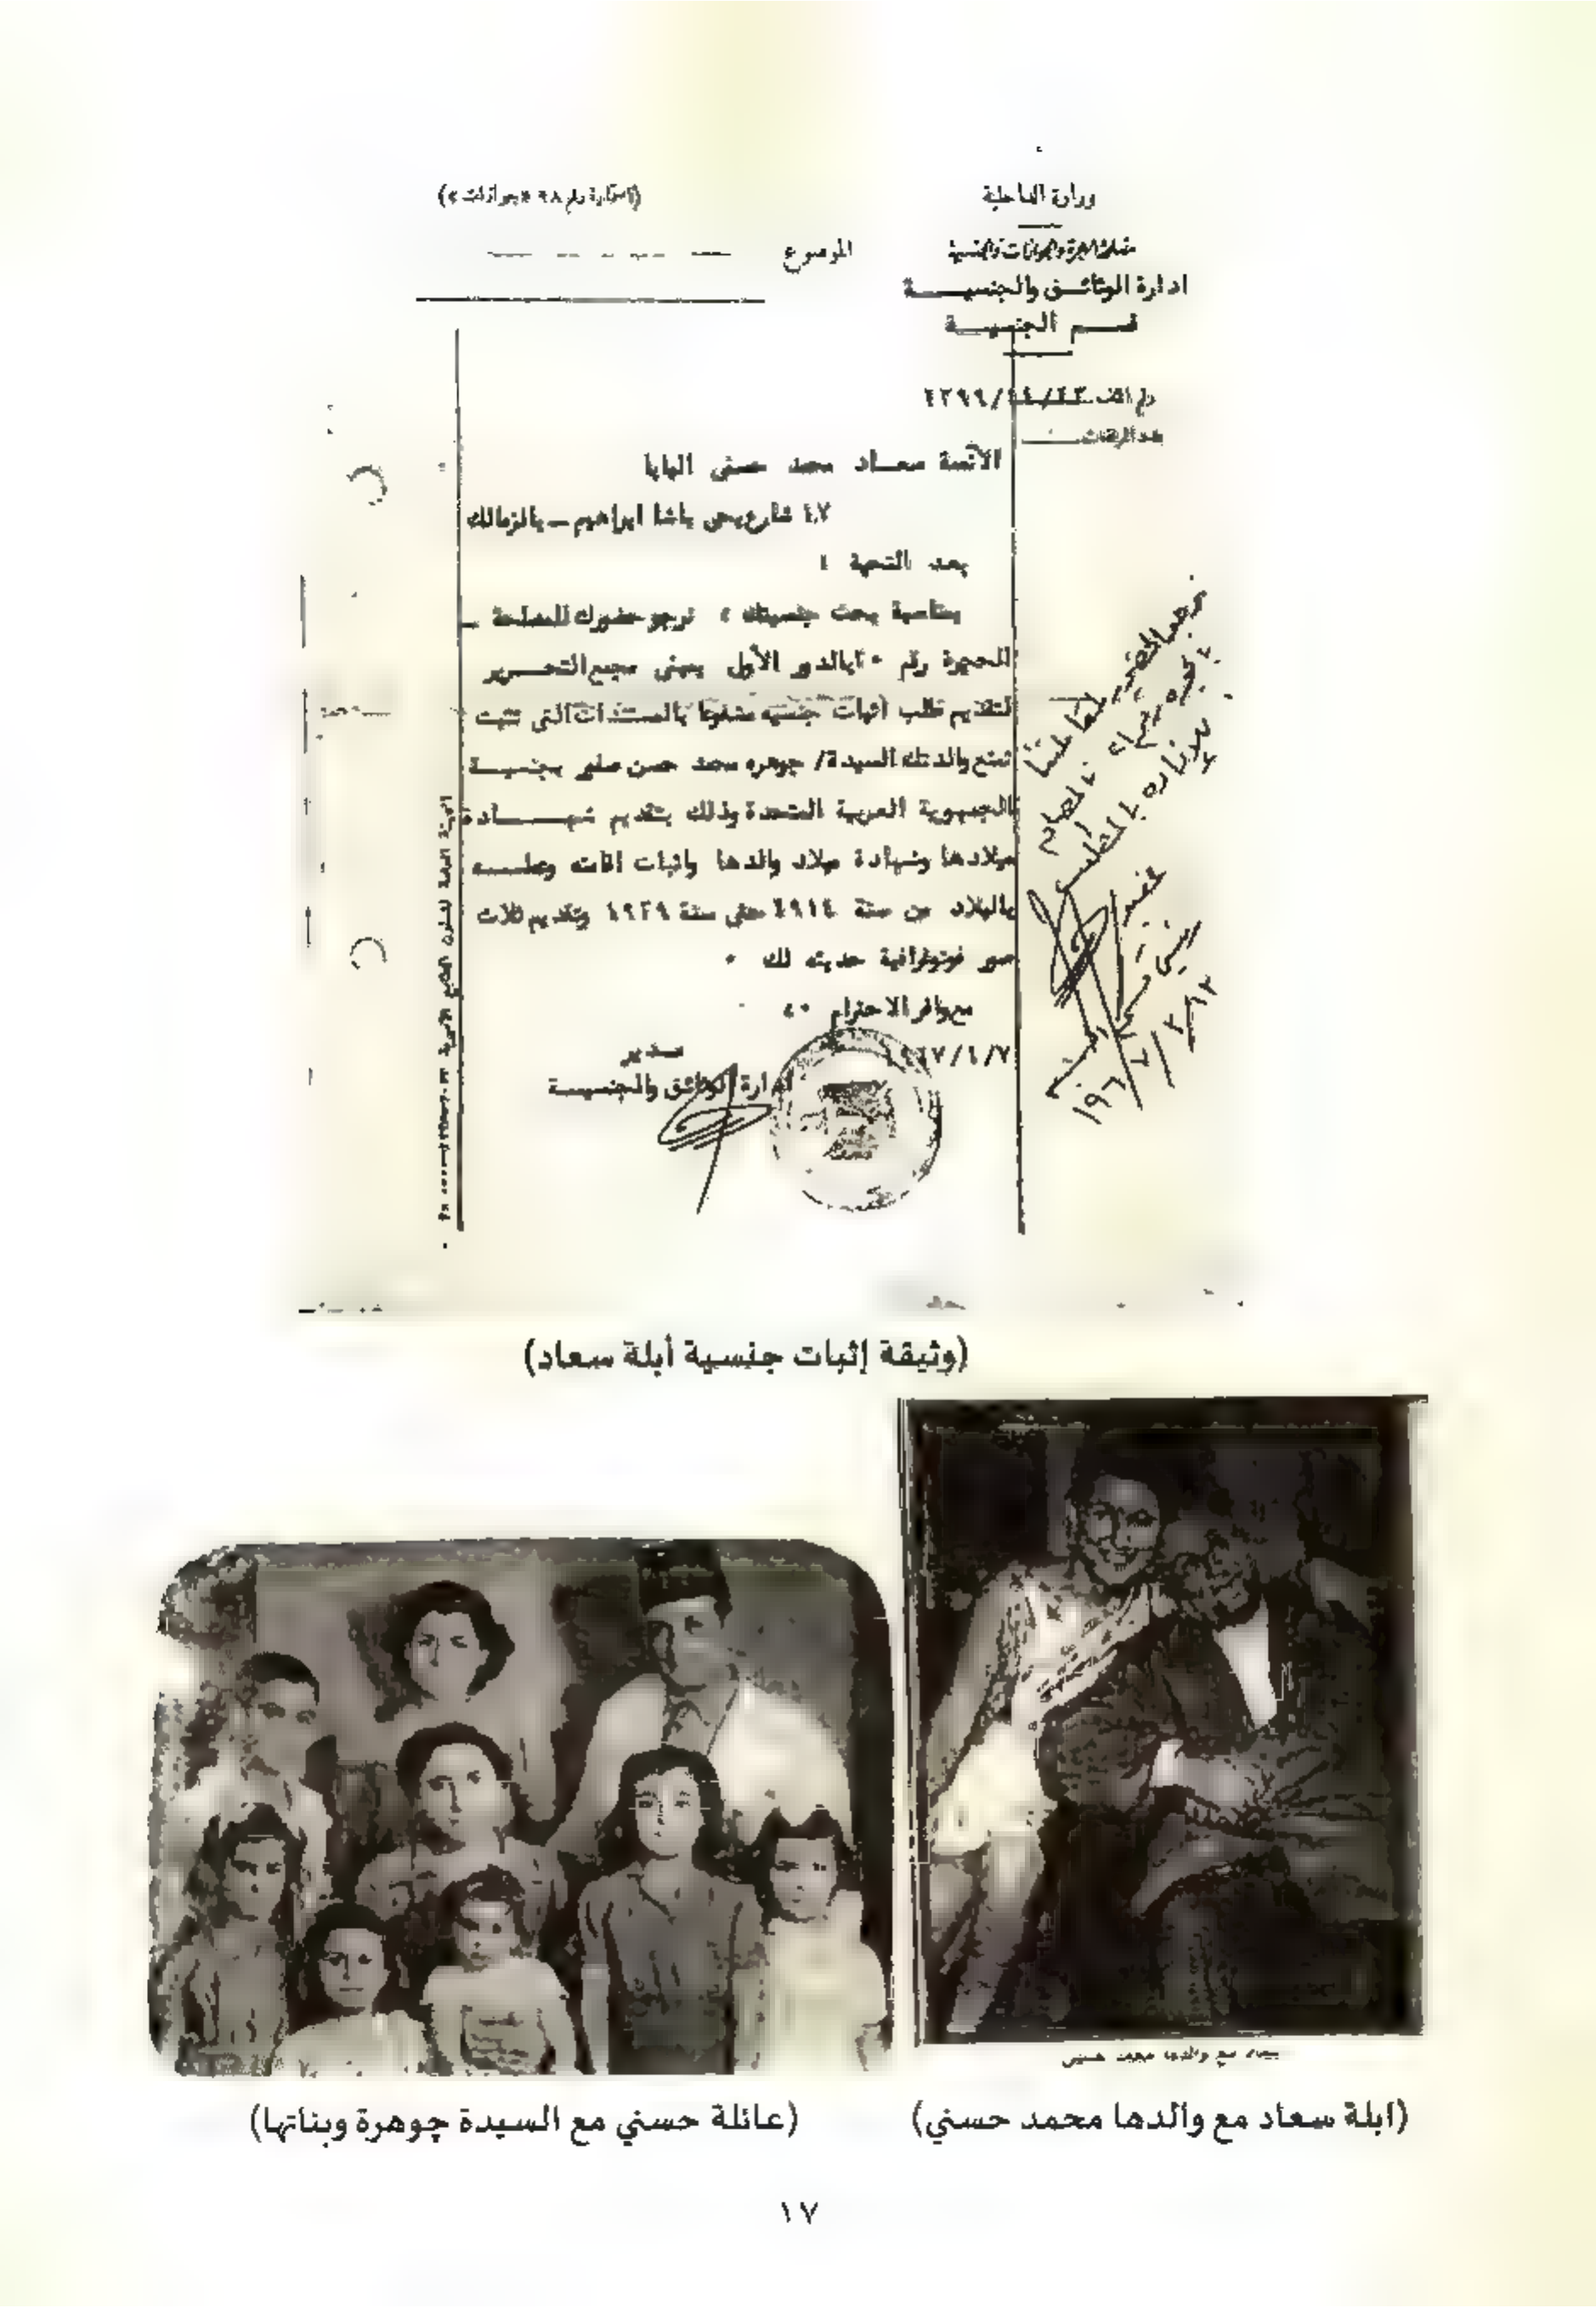 وزارة الداخلية
(استمارة رقم ٦٨ «جوازات»)
مصلحة الهجرة والجوازات والجنسية
الموضوع
ادارة الوثائـق والجنسيـــة
قســم الجنسيــة
رقم الملف ٤٢٩٩/٤٤/٤٣
عدد المرفقات
الآنسة سعـاد محمد حسنى البابا
٤٧ شارع يحى باشا ابراهيم – بالزمالك
بعد التحية :
بمناسبة بحث جنسيتك ، نرجو حضورك للمصلحة –
الحجرة رقم بالدور الأول بمبنى مجمع التحـــرير
لتقديم طلب اثبات جنسيه مشفوعا بالمستندات التى تثبت
تمتع والدتك السيدة/ جوهره محمد حسن صفور بجنسيــة
الجمهورية العربية المتحدة وذلك بتقديم شهـــادة
ميلادها وشهادة ميلاد والدها واثبات اقامته وعملــه
بالبلاد من سنة ١٩١٤ حتى سنة ١٩٢٩ وتقديم ثلاث
صور فوتوغرافية حديثه لك ٠
مع وافر الاحترام ٠،
مـدير
ادارة الوثائق والجنسيــة
(وثيقة إثبات جنسية أبلة سعاد)
سعاد مع والدها محمد حسنى
(ابلة سعاد مع والدها محمد حسني)
(عائلة حسني مع السيدة چوهرة وبناتها)
١٧